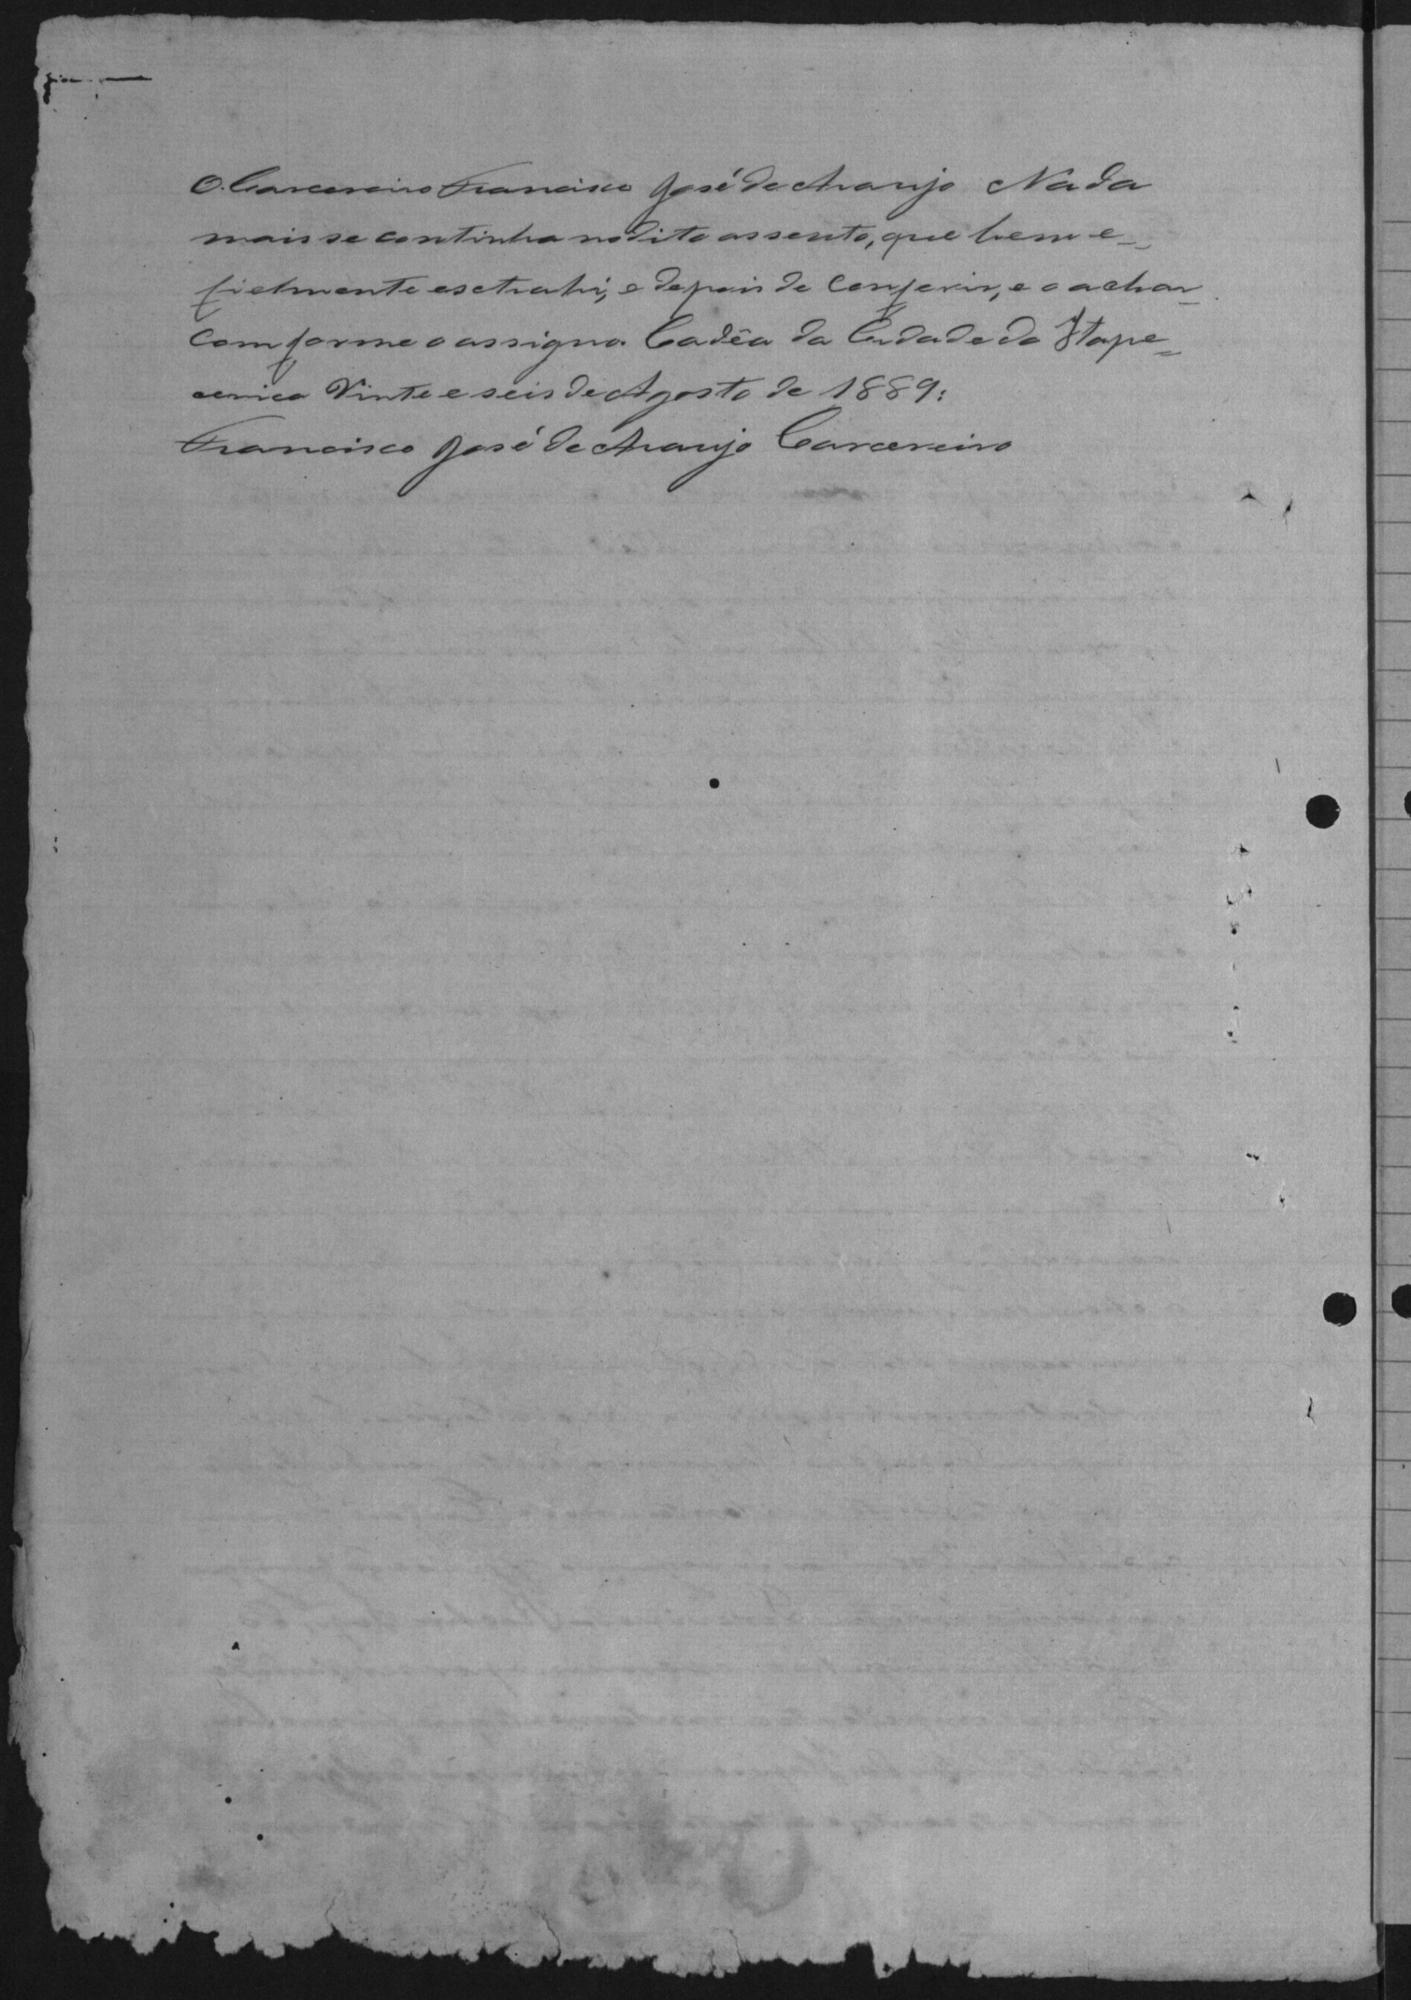 O Carcereiro Francisco José de Araujo Nada
mais se continha no dito assento, que bem e
fielmente esctrahi, e depois de conferir, e o achar
comforme o assigno. Cadêa da Cidade do Itape=
cerica Vinte e seis de Agosto de 1889:
Francisco José de Araujo Carcereiro